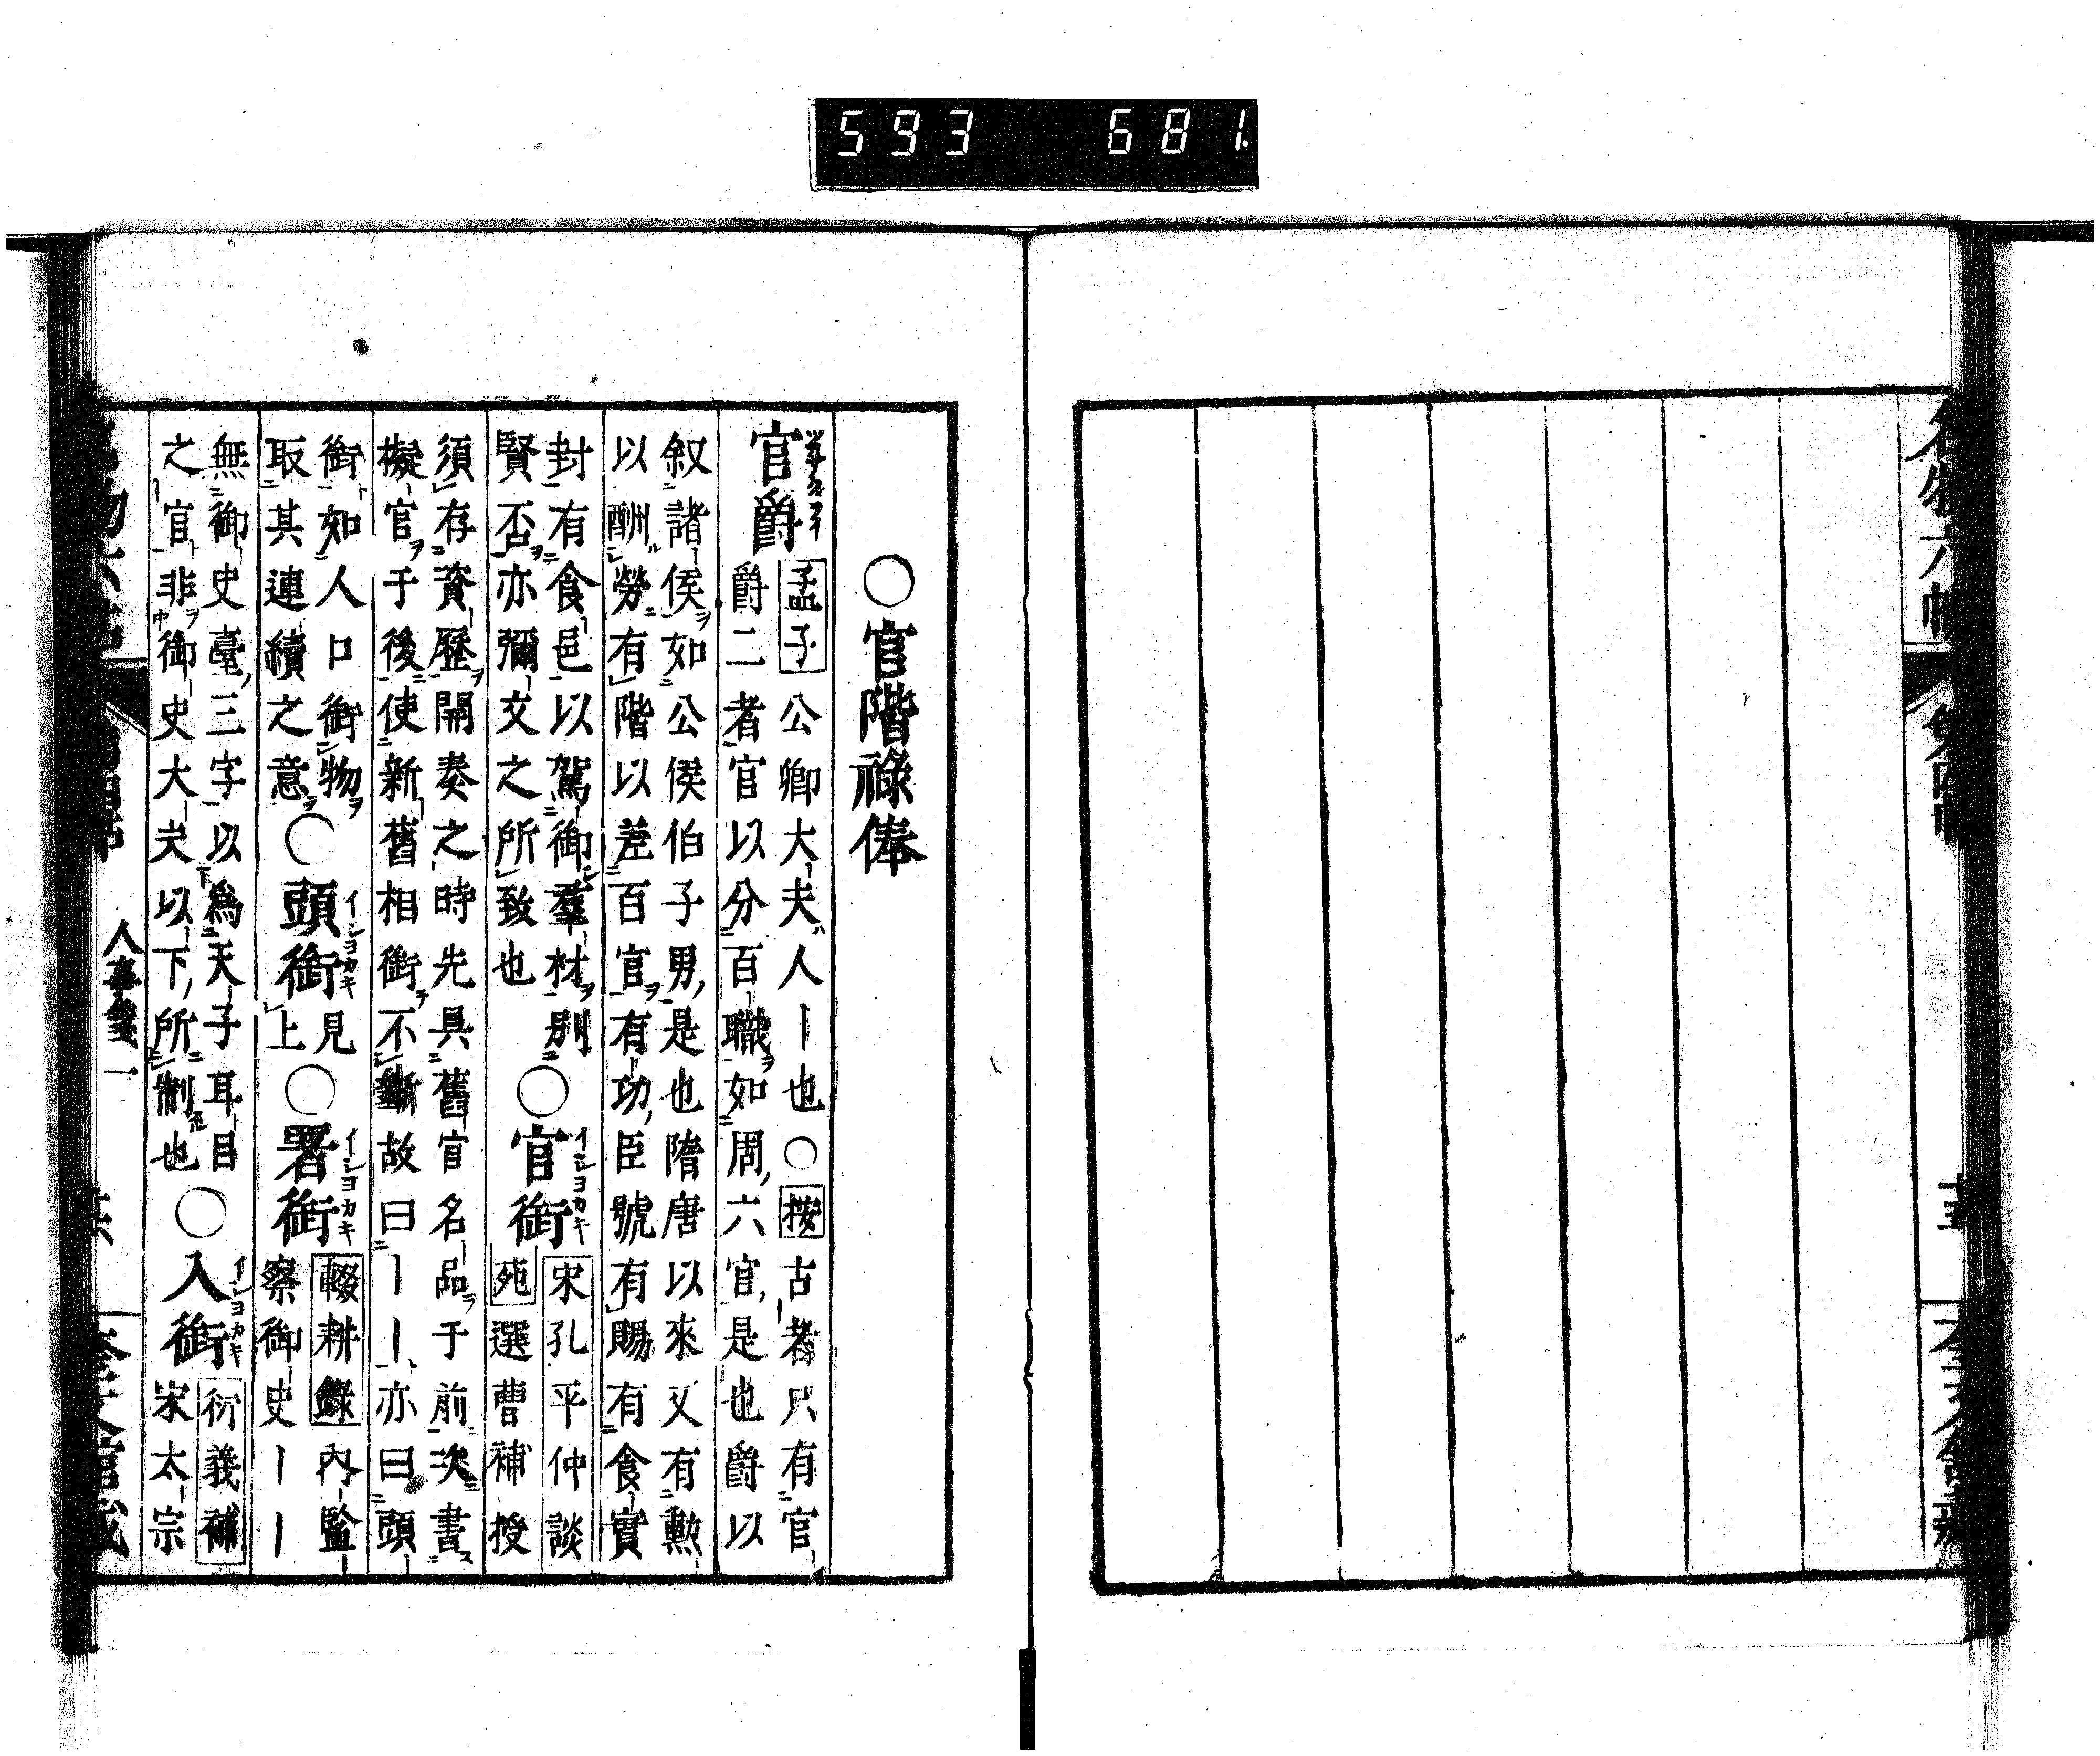 593 681
名物六帖
第四帖
十五
奎文館藏
○官階祿俸
官爵
孟子公卿大夫人丨也○按古者只有官
爵二者官以分百職如周六官是也爵以
叙諸侯如公侯伯子男是也隋唐以來又有勲
以酬勞有階以差百官有功臣號有賜有食實
封有食邑以駕御羣材別
賢否亦彌文之所致也
○官銜
イシヨカキ
宋孔平仲談
苑選曹補授
須存資歷開奏之時先具舊官名品于前次書
擬官于後使新舊相銜不斷故曰丨丨亦曰頭
銜如人口銜物
取其連續之意
○頭銜
イシヨカキ
見上
○署銜
イシヨカキ
輟耕錄內監
察御史丨丨
無御史臺三字以為天子耳目
之官非御史大夫以下所制也
○入銜
イシヨカキ
衍義補
宋太宗
人事箋一
奎文館藏